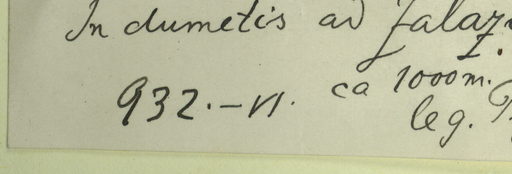 In dumetis ad
I.
932.-VI. ca 1000m.
leg.